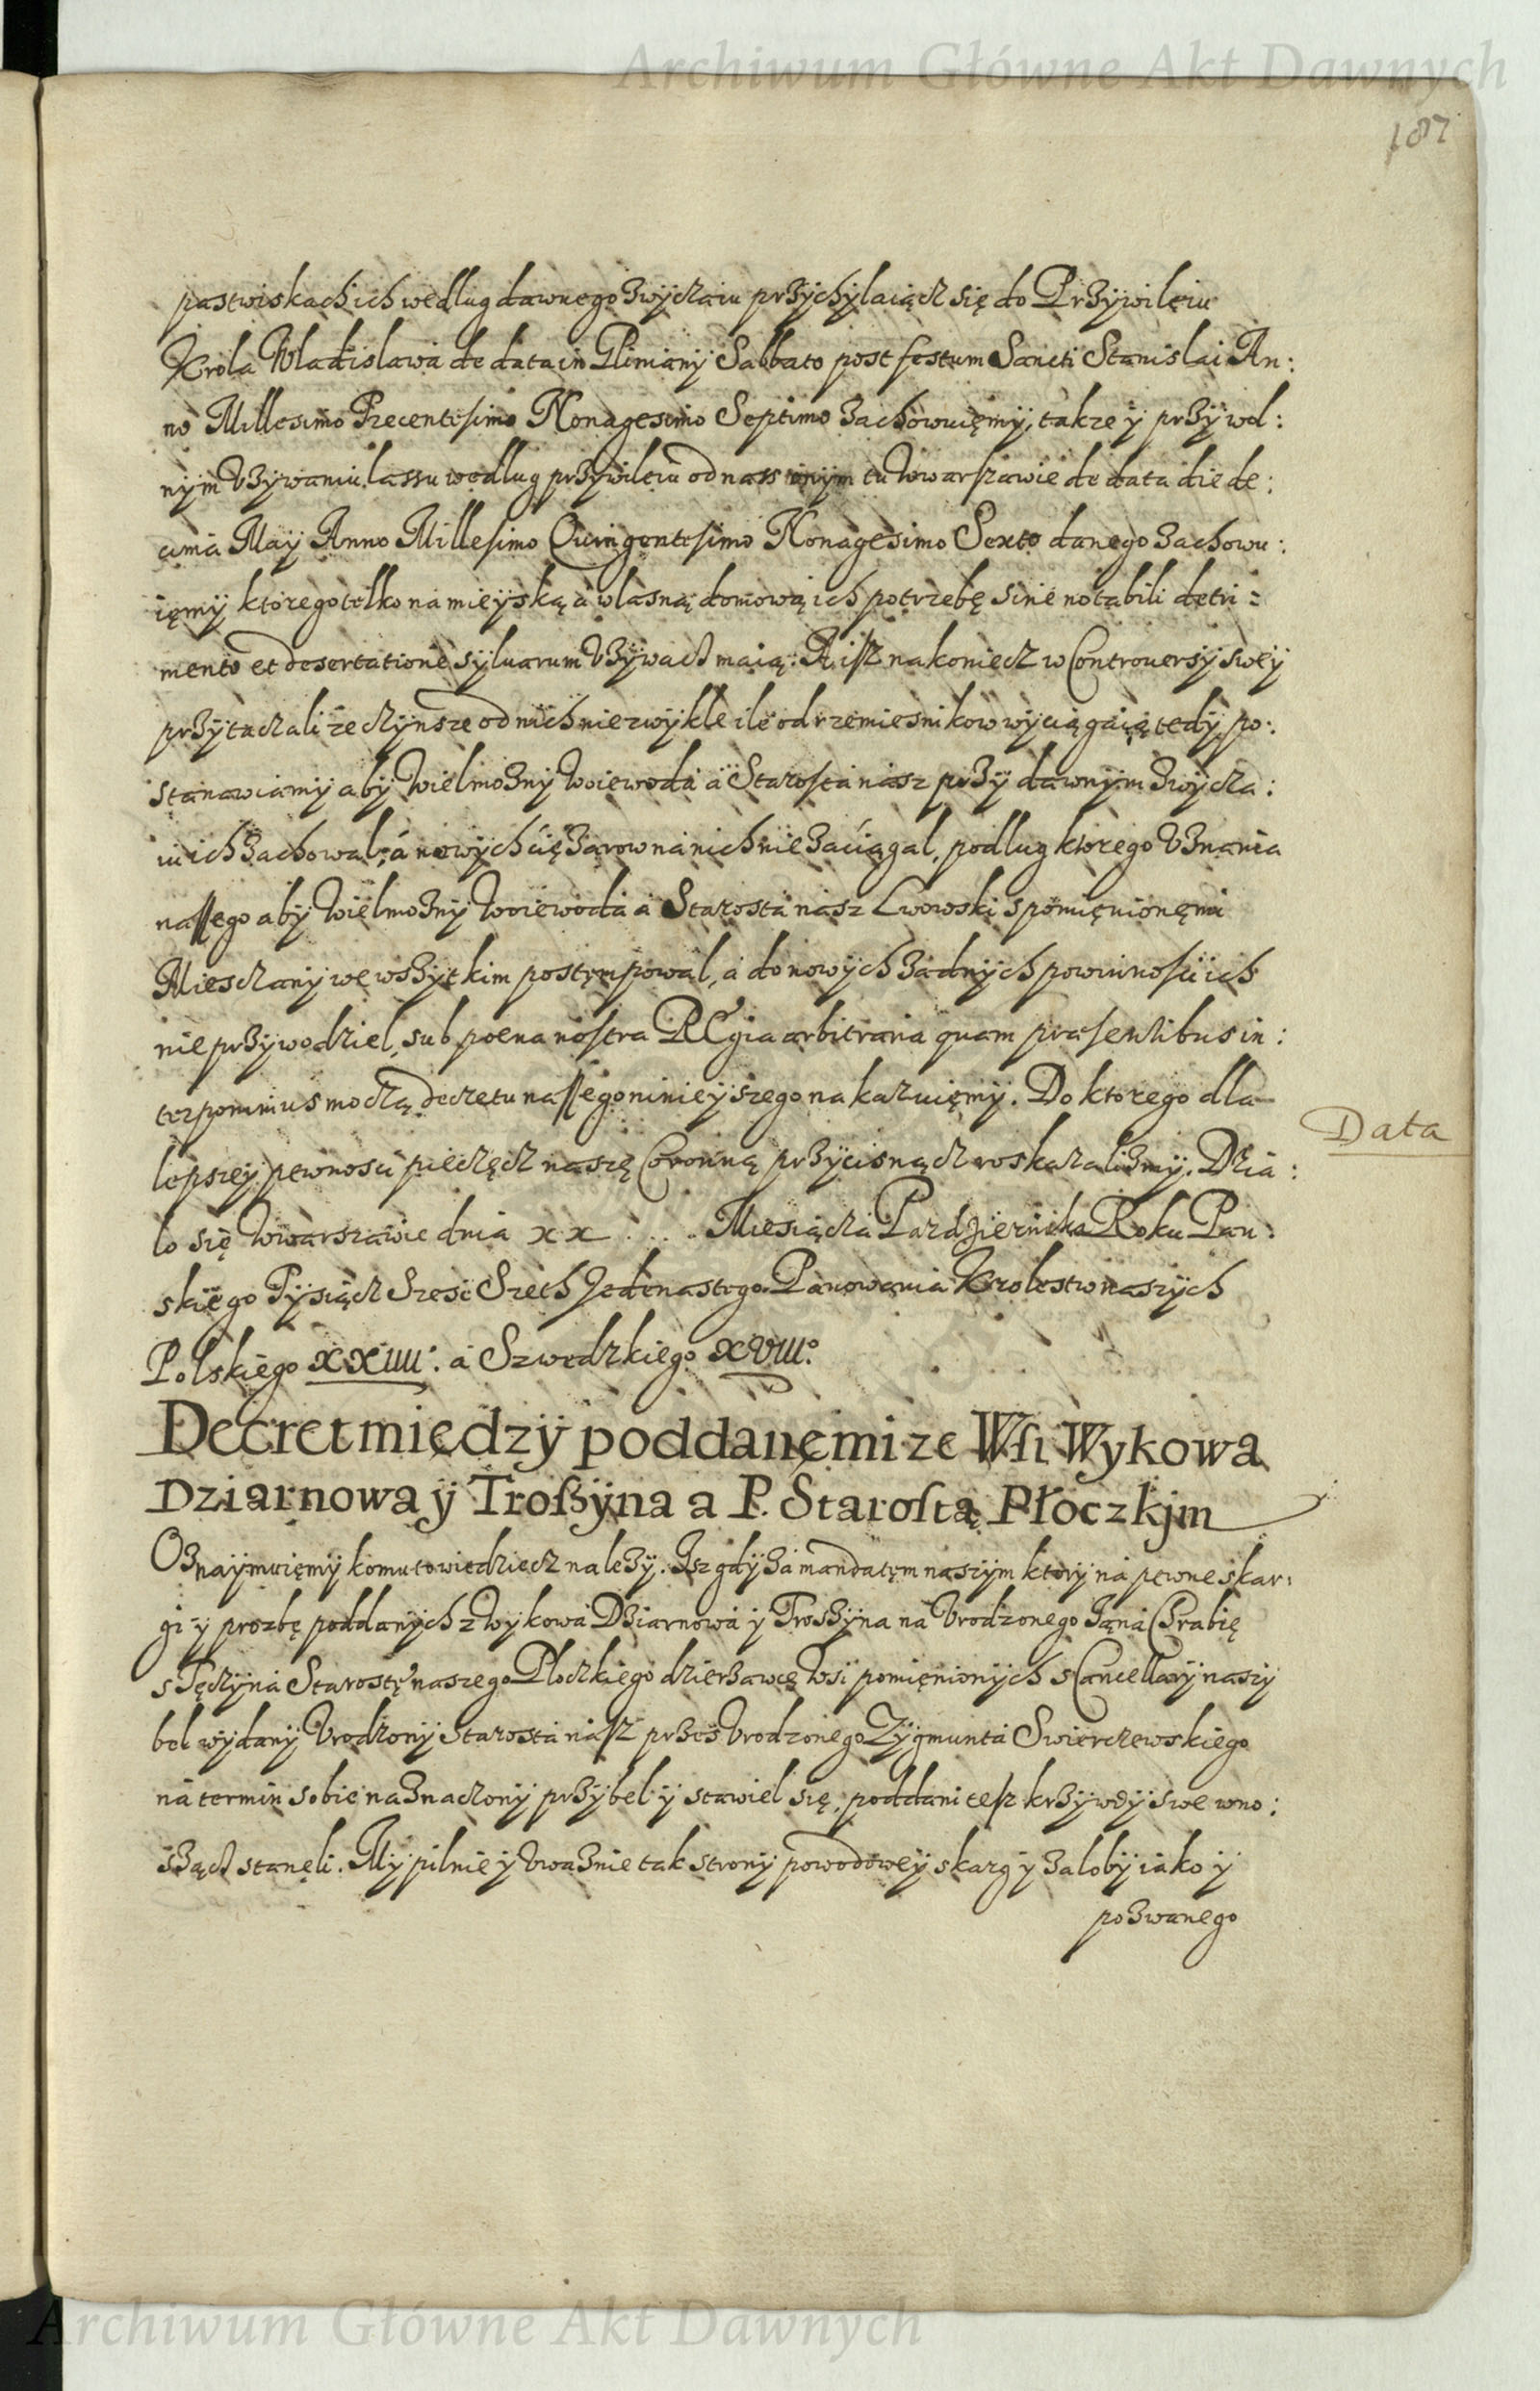 Archiwum Główne Akt Dawnych
187
pastwiskach ich według dawnego zwyczaiu przychylaiącz się do Przywileiu
Krola Wladislawa de data in Gliniany Sabbato post festum Sancti Stanislai An:
no Millesimo Trecentesimo Nonagesimo Septimo zachowuięmy, takze y przy wol:
nym Vzywaniu lassu wedlug przywileiu od nass inym tu w Warszawie de data die de:
cima May Anno Millesimo Quingentesimo Nonagesimo Sexto danego zachowu:
ięmy ktorego tolko na mieyską a wlasną domową ich potrzebę sine notabili detri:
mento et desertatione syluarum Vzywacz maią. A isz nakoniecz w Controuersy swey
przytaczali ze czynsze od nich niezwykle ile od rzemiesnikow wyciągaią tedy po:
stanawiamy aby Wielmozny Woiewoda a Starosta nasz przy dawnym zwycza:
iu ich zachowal, a nowych cięzarow na nich nie zaciągal, podlug ktorego Vznania
naszego aby Wielmozny Woiewoda a Starosta nasz Lwowski spomięnionęmi
Miesczany we wszytkim postęmpowal, a do nowych zadnych powinnosci ich
nie przywodziel, sub poena nostra REgia arbitraria quam præsentibus in:
terponimus moczą decretu naszego ninieyszego nakazuięmy. Do ktorego dla
Data
lepszey pewnosci pieczęcz naszę Coronną przycisnącz roskazalizmy. Dzia:
lo się w Warszawie dnia xx .... Miesiącza Pazdziernika Roku Pan:
skiego Tysiącz Szesc Szeth Jedenastego Panowania Krolestw naszych
Polskiego xxiiii. a Szwedzkiego xviii.
Decret między poddanęmi ze Wsi Wykowa
Dziarnowa ÿ Troszÿna a P. Starostą Płoczkjm
Oznaymuięmy komu to wiedziecz nalezy. Isz gdy za mandatęm naszym ktory na pewne skar:
gi y prozbę poddanych z Wykowa Dziarnowa y Troszyna na Vrodzonego Jana Chrabię
s Tęczyna Starostę naszego Ploczkiego dzierzawcę Wsi pomięnionych s Cancellary naszy
bel wydany Vrodzony Starosta nasz przes Vrodzonego Zygmunta Swierczewskiego
na termin sobie naznaczony przybel y stawiel się, poddani tesz krzywdy swe wno:
szącz stanęli. My pilnie y Vwaznie tak strony powodowey skarg y zaloby iako y
pozwanego
Archiwum Główne Akt Dawnych